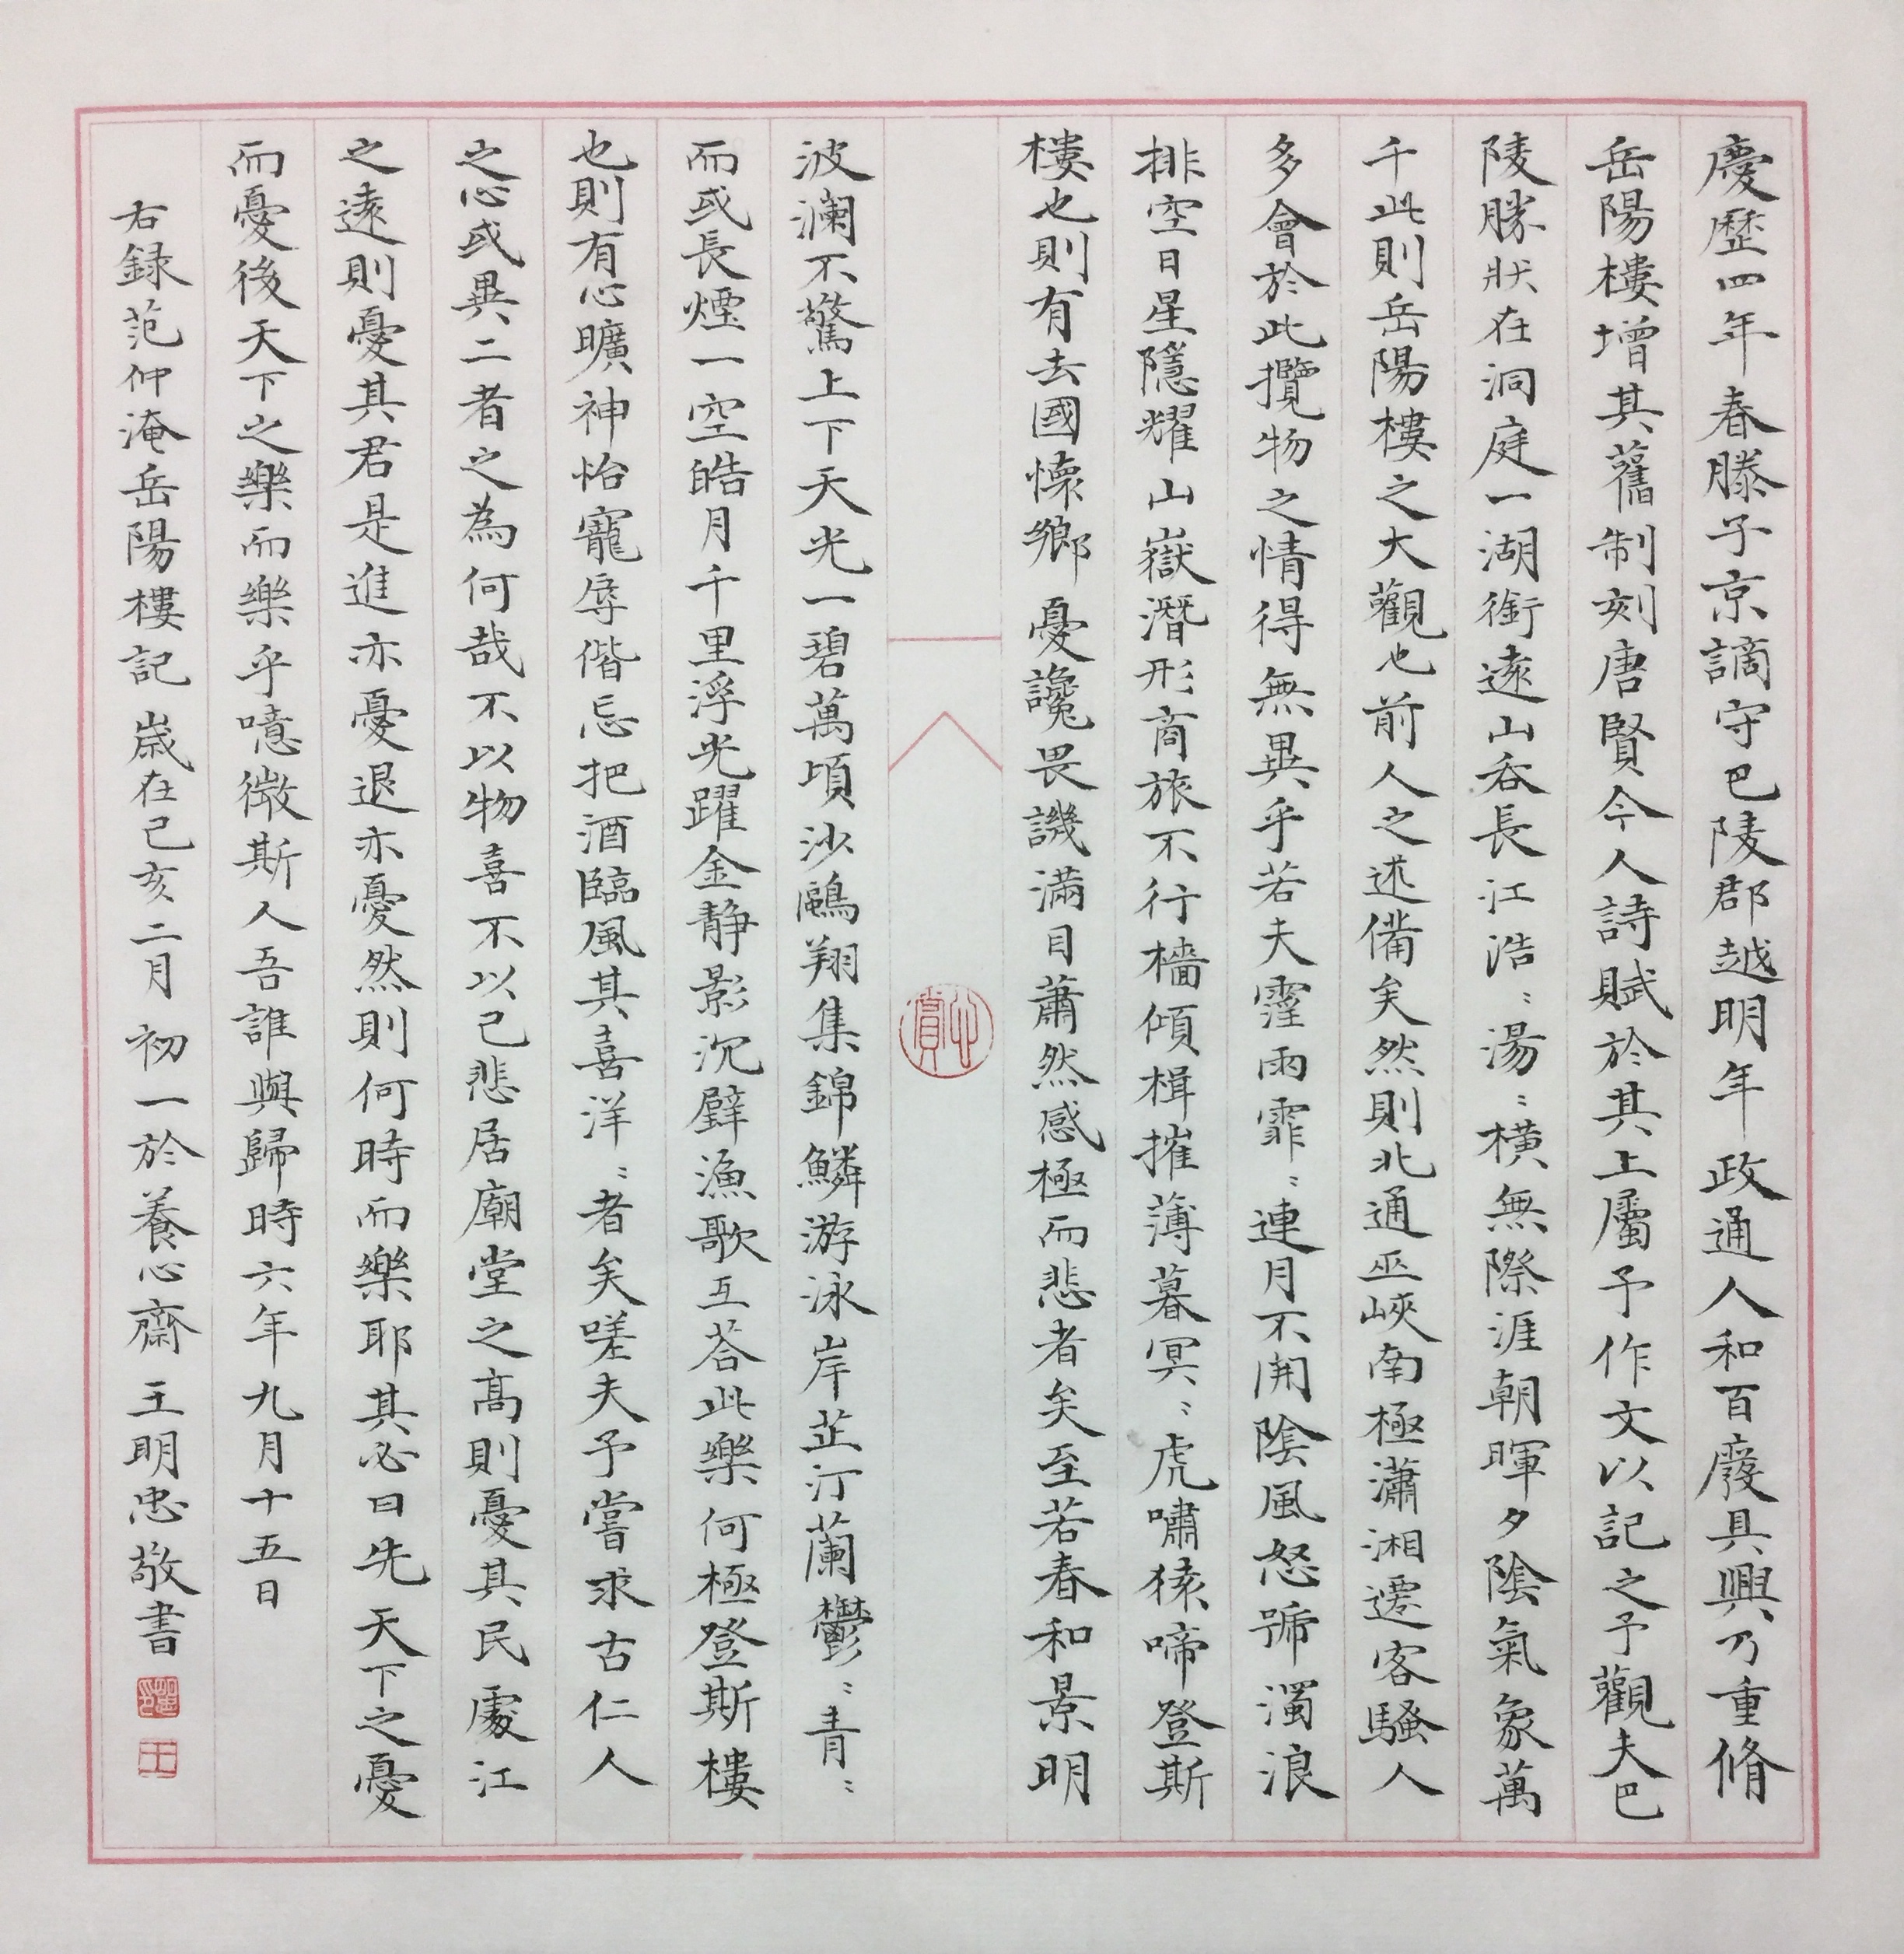 慶歷四年春滕子京謫守巴陵郡越明年政通人和百廢具興乃重脩
岳陽樓增其舊制刻唐賢今人詩賦於其上屬予作文以記之予觀夫巴
陵勝狀在洞庭一湖銜遠山吞長江浩〻湯〻橫無際涯朝暉夕陰氣象萬
千此則岳陽樓之大觀也前人之述備矣然則北通巫峽南極瀟湘遷客騷人
多會於此攬物之情得無異乎若夫霪雨霏〻連月不開陰風怒號濁浪
排空日星隱耀山嶽潛形商旅不行檣傾楫摧薄暮冥〻虎嘯猿啼登斯
樓也則有去國懷鄉憂讒畏譏滿目蕭然感極而悲者矣至若春和景明
心賞
波瀾不驚上下天光一碧萬頃沙鷗翔集錦鱗游泳岸芷汀蘭鬱〻青〻
而或長煙一空皓月千里浮光躍金静影沉璧漁歌互荅此樂何極登斯樓
也則有心曠神怡寵辱偕忘把酒臨風其喜洋〻者矣嗟夫予嘗求古仁人
之心或異二者之為何哉不以物喜不以己悲居廟堂之高則憂其民處江
之遠則憂其君是進亦憂退亦憂然則何時而樂耶其必曰先天下之憂
而憂後天下之樂而樂乎噫微斯人吾誰與歸時六年九月十五日
右録范仲淹岳陽樓記 歲在己亥二月初一於養心齋 王明忠敬書
王